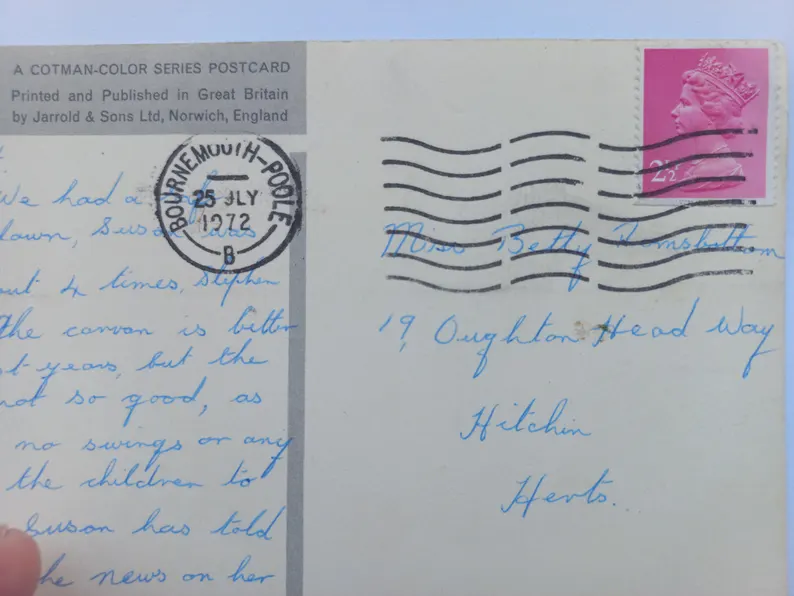 A COTMAN-COLOR SERIES POSTCARD
Printed and Published in Great Britain
by Jarrold & Sons Ltd, Norwich, England
BOURNEMOUTH-POOLE
25 JLY
1972
B
2½
We had a
down, Susan was
out 4 times, Stephen
the carvan is better
st years, but the
not so good, as
no swings or any
the children to
Susan has told
he news on her
Miss Betty Ramsbottom
19, Oughton Head Way
Hitchin
Herts.